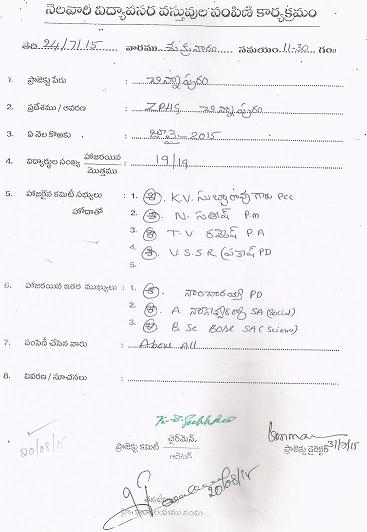 నెలవారి విద్యావసర వస్తువుల పంపిణి కార్యక్రమం
తేది. 24/7/15 వారము శుక్రవారం సమయం 11-30 గం॥
1. ప్రాజెక్టు పేరు : చిన్నాపురం
2. ప్రదేశము / ఆవరణ : ZPHS, చిన్నాపురం
3. ఏ నెల కొఱకు : జూలై - 2015
4. విద్యార్థుల సంఖ్య హాజరయిన / మొత్తము : 19/19
5. హాజరైన కమిటీ సభ్యులు హోదాతో : 1. శ్రీ. K.V. సుబ్బారావు గారు PCC
2. శ్రీ. N. సతీష్ P.M
3. శ్రీ. T.V. రమేష్ P.A
4. శ్రీ. V.S.S.R ప్రకాష్ PD
5.
6. హాజరయిన ఇతర ముఖ్యులు : 1. శ్రీ. PD
2. శ్రీ. A. SA (Social)
3. శ్రీ. B. Sc Bose SA (Science)
7. పంపిణీ చేసిన వారు : Above All
8. వివరణ / సూచనలు :
20/08/15
ప్రాజెక్టు కమిటీ చైర్‌మెన్, ఆడిటర్
ప్రాజెక్టు డైరెక్టర్ 31/7/15
20/08/15